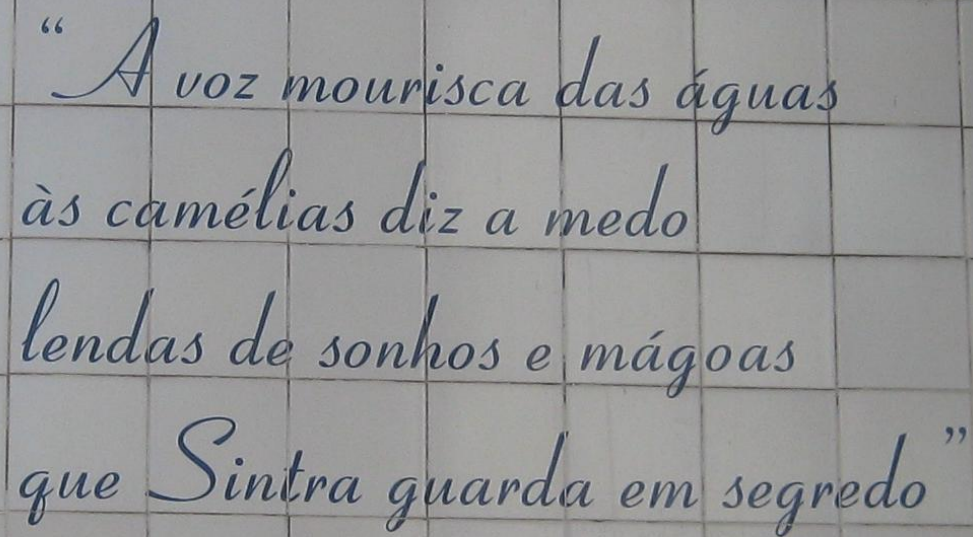 “A voz mourisca das águas
às camélias diz a medo
lendas de sonhos e mágoas
que Sintra guarda em segredo”